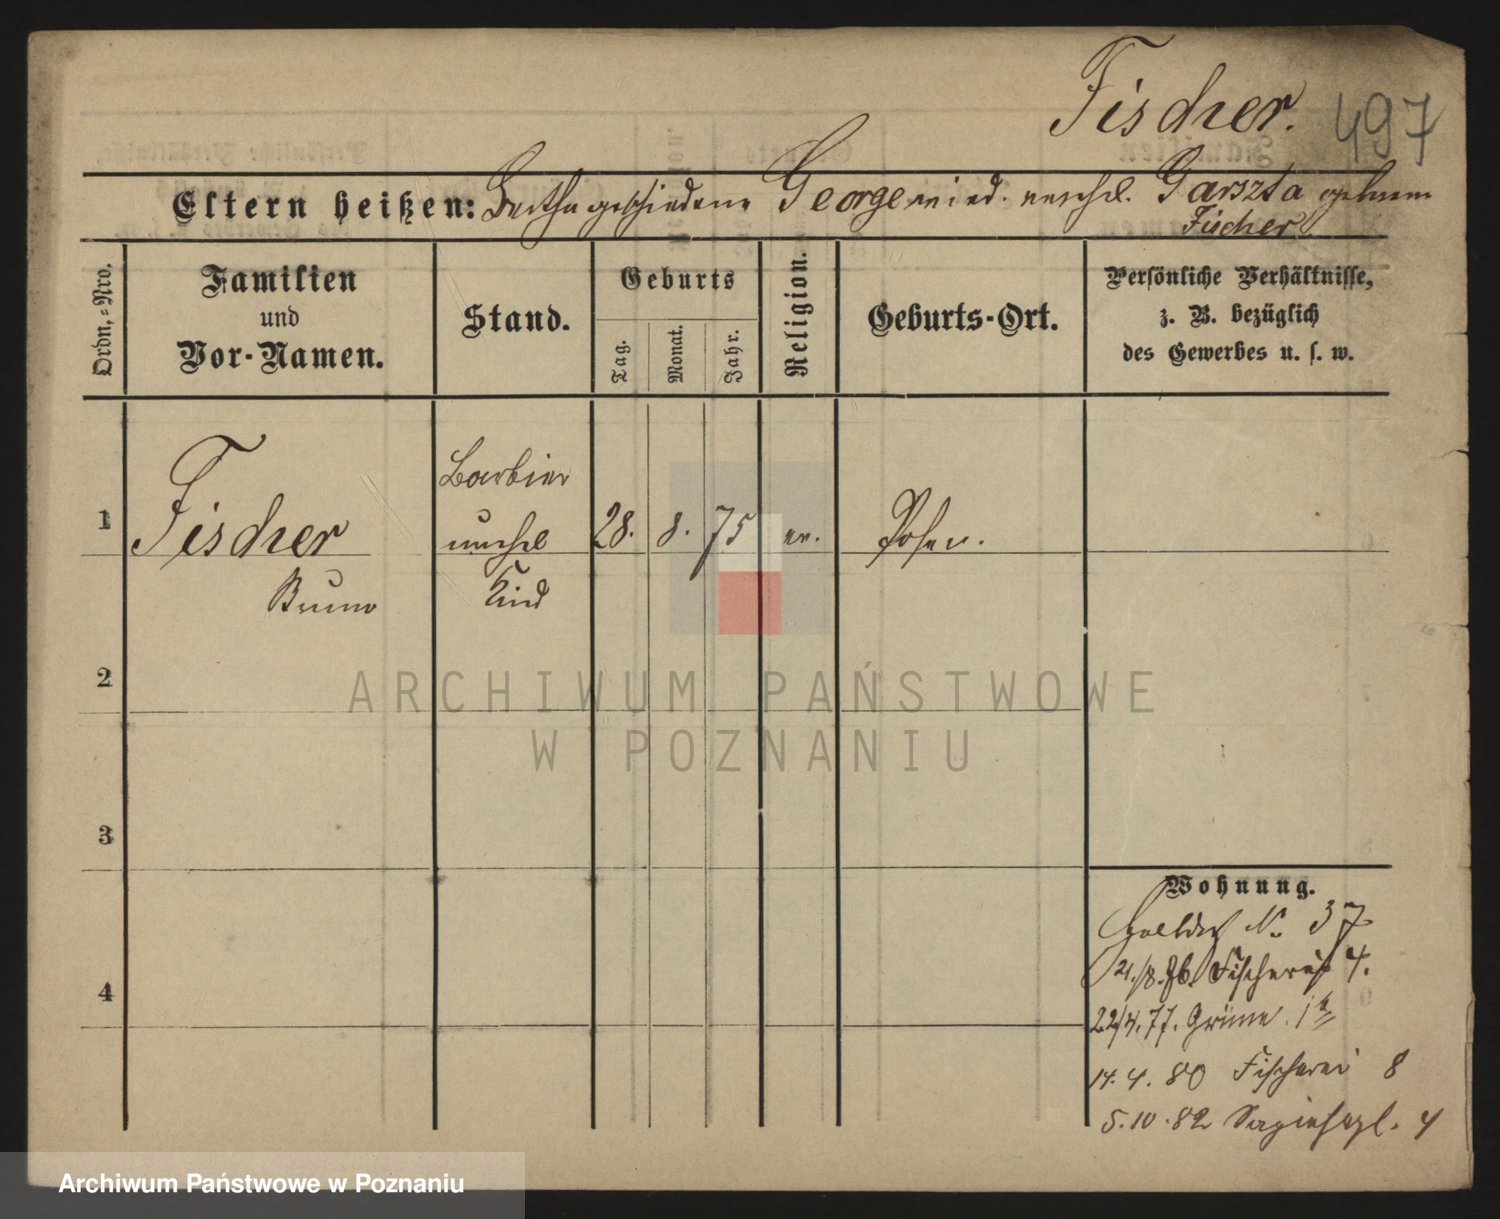 Fischer. 497
Eltern heißen: Bertha geschiedene George wied. verehel. Garszta geborene
Fischer
Ordn.-Nro.
Familien
und
Vor-Namen.
Stand.
Geburts
Tag.
Monat.
Jahr.
Religion.
Geburts-Ort.
Persönliche Verhältnisse,
z. B. bezüglich
des Gewerbes u. s. w.
Barbier
1 Fischer unehel 28. 8. 75 ev. Posen.
Bruno Kind
2
ARCHIWUM PAŃSTWOWE
W POZNANIU
3
Wohnung.
No. 37
21./8. 76. Fischerei 4.
4
22/4. 77. Grüne 1a
14. 4. 80 Fischerei 8
5. 10. 82 Sapiehapl. 4
Archiwum Państwowe w Poznaniu